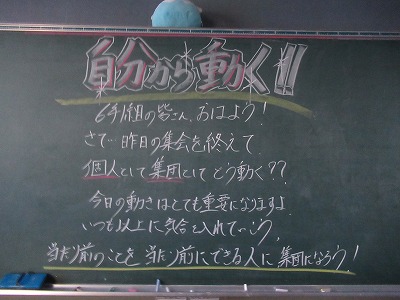 自分から動く!!
6年1組の皆さん、おはよう!
さて…昨日の集会を終えて
個人として集団としてどう動く??
今日の動きはとても重要になりますよ
いつも以上に気合を入れていこう。
当たり前のことを当たり前にできる人に集団になろう!